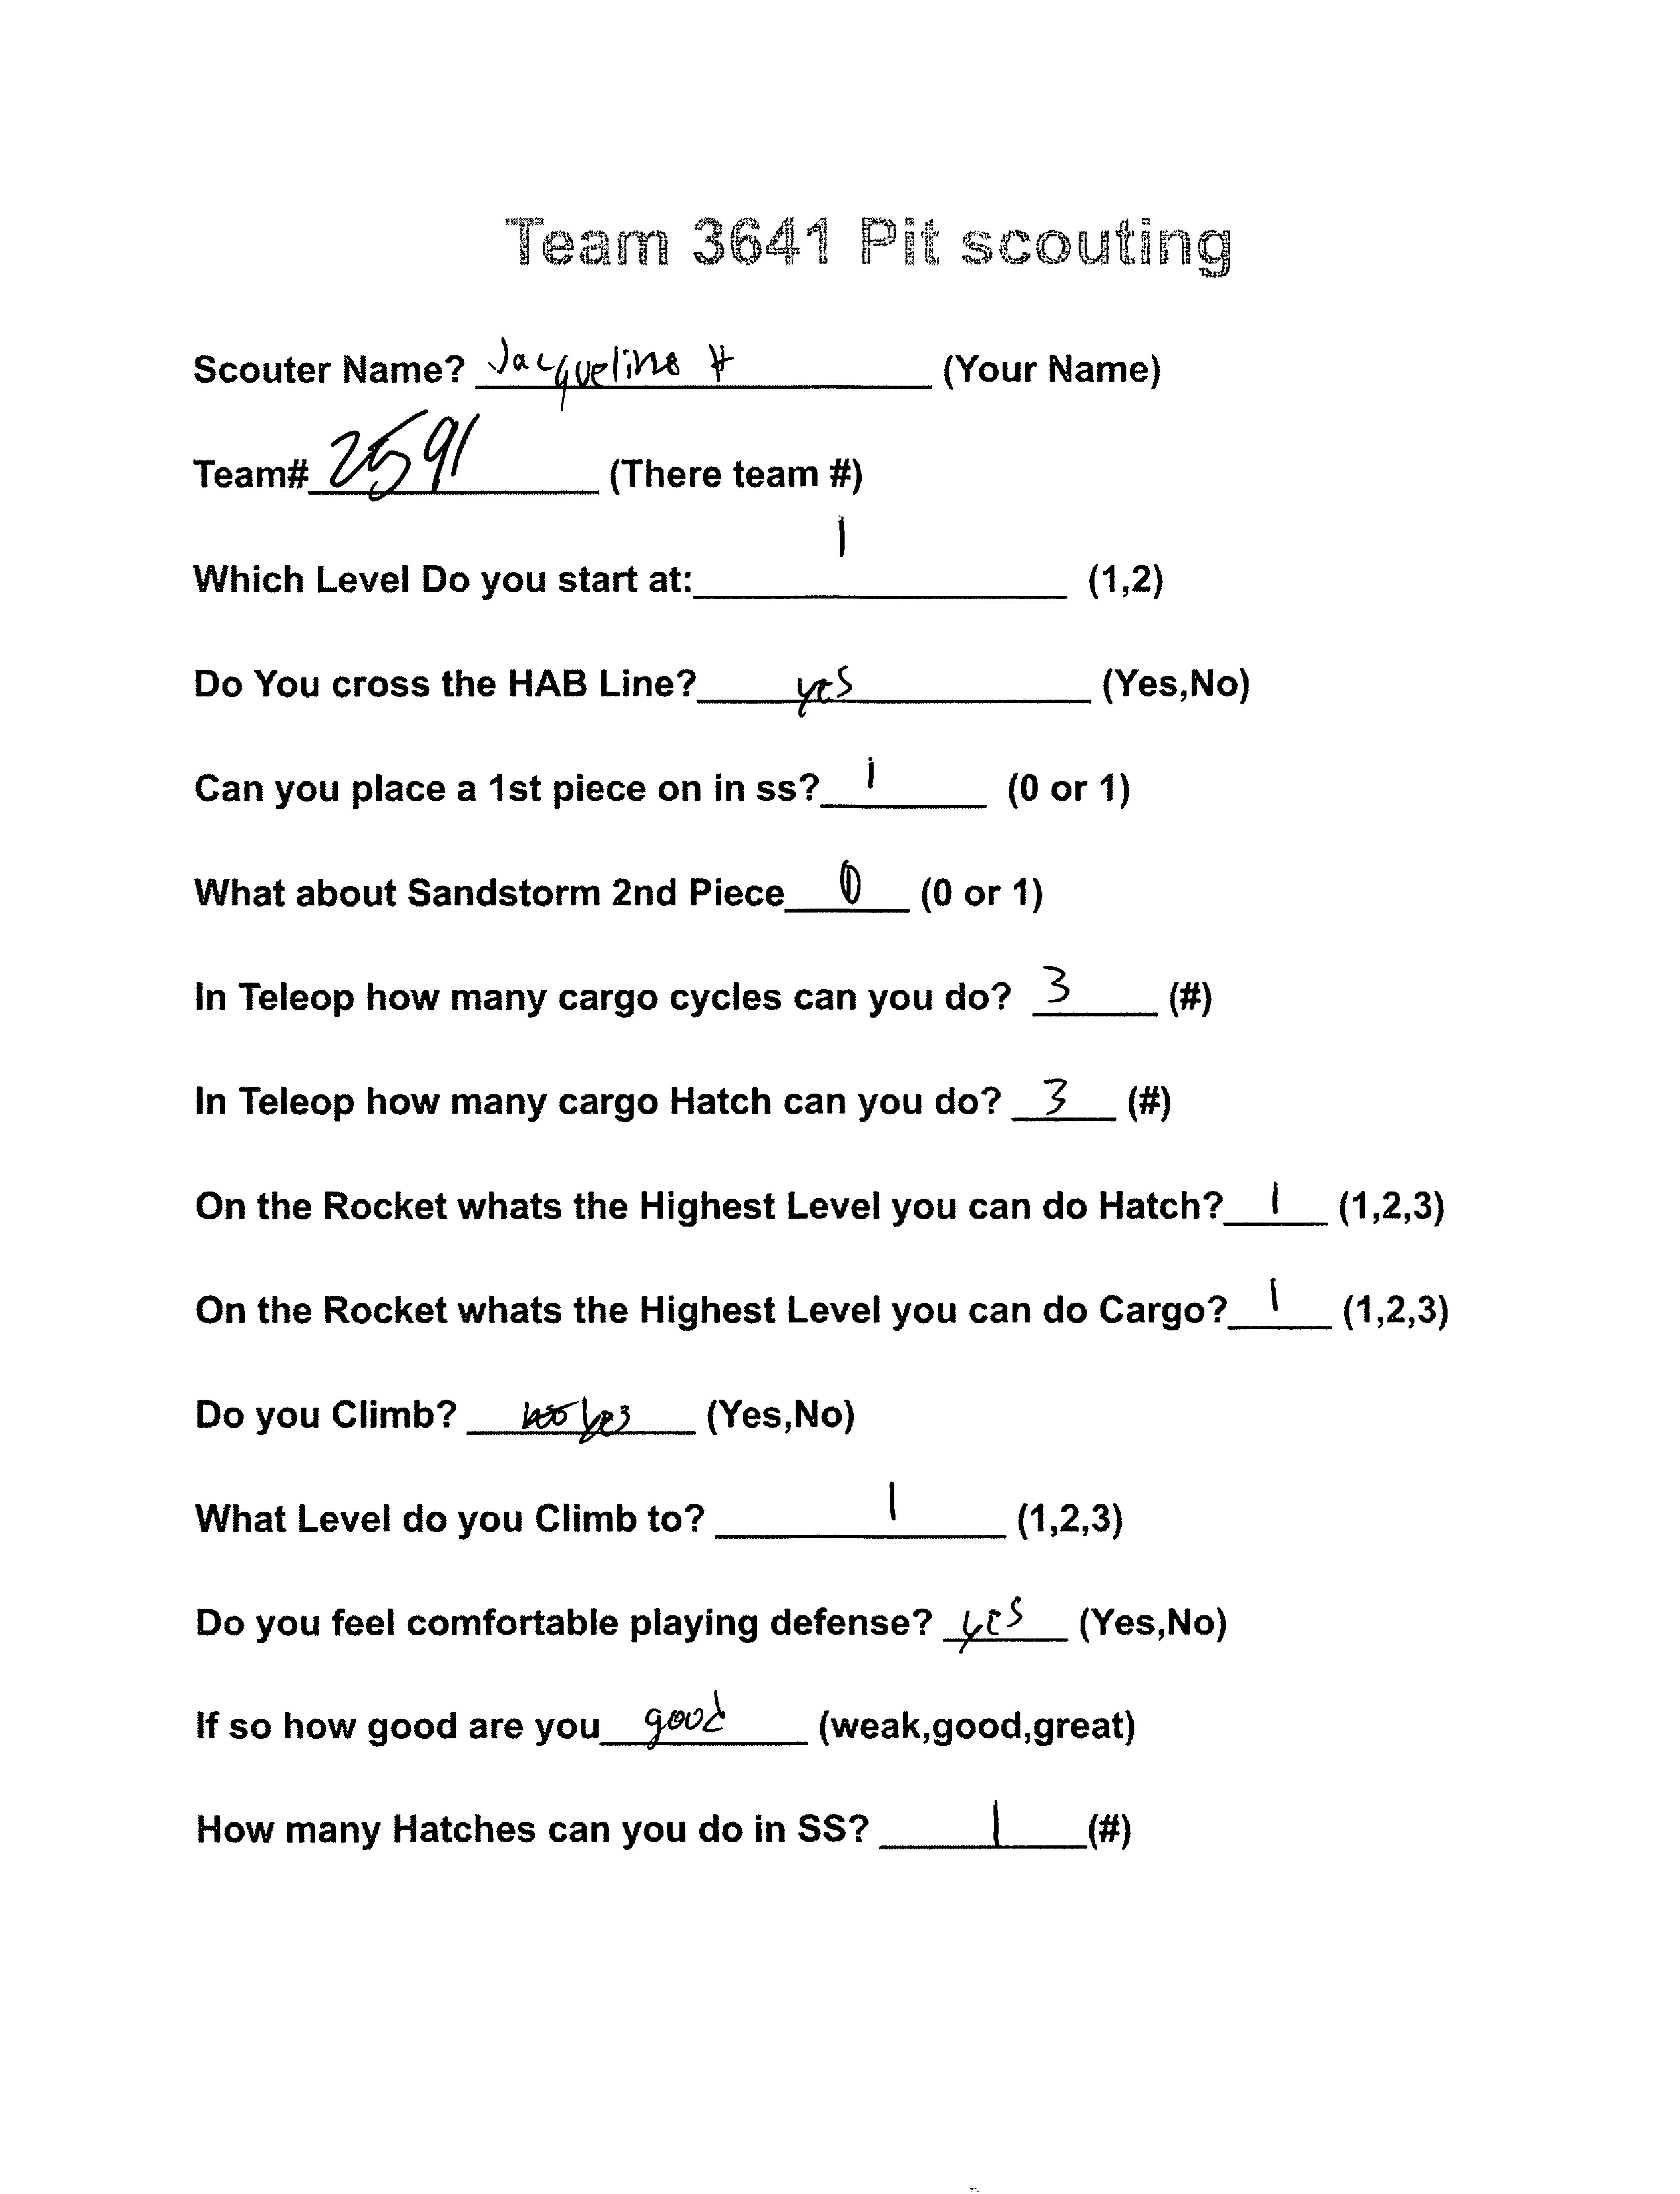 Team 3641 Pit scouting
Scouter Name? Jacqueline H (Your Name)
Team# 2591 (There team #)
Which Level Do you start at: 1 (1,2)
Do You cross the HAB Line? yes (Yes,No)
Can you place a 1st piece on in ss? 1 (0 or 1)
What about Sandstorm 2nd Piece 0 (0 or 1)
In Teleop how many cargo cycles can you do? 3 (#)
In Teleop how many cargo Hatch can you do? 3 (#)
On the Rocket whats the Highest Level you can do Hatch? 1 (1,2,3)
On the Rocket whats the Highest Level you can do Cargo? 1 (1,2,3)
Do you Climb? yes (Yes,No)
What Level do you Climb to? 1 (1,2,3)
Do you feel comfortable playing defense? yes (Yes,No)
If so how good are you good (weak,good,great)
How many Hatches can you do in SS? 1 (#)